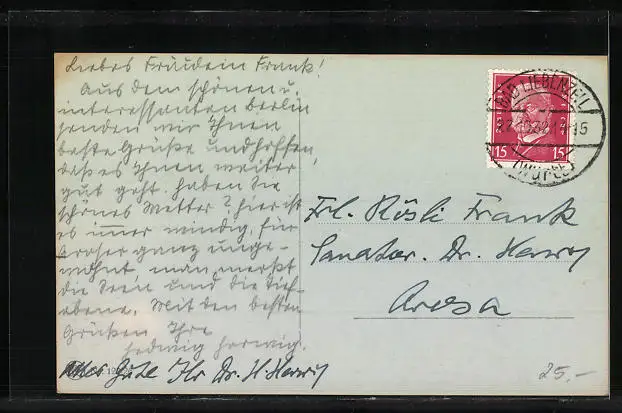 Liebes Fräulein Frank!
Aus dem schönen u.
interessanten Berlin
senden wir Ihnen
beste Grüße und hoffen,
daß es Ihnen weiter
gut geht. haben Sie
schönes Wetter? hier ist
es immer windig, für
Aroser ganz unge-
wohnt, man merkt
die Seen und die Tief-
ebene. Mit den besten
Grüßen Ihre
Hedwig Herwig.
Alles Gute Ihr Dr. H. Herwig
BAD LIEBENZELL
15 15
(WÜRTT)
Frl. Rösli Frank
Sanator. Dr. Herwig
Arosa
25.-